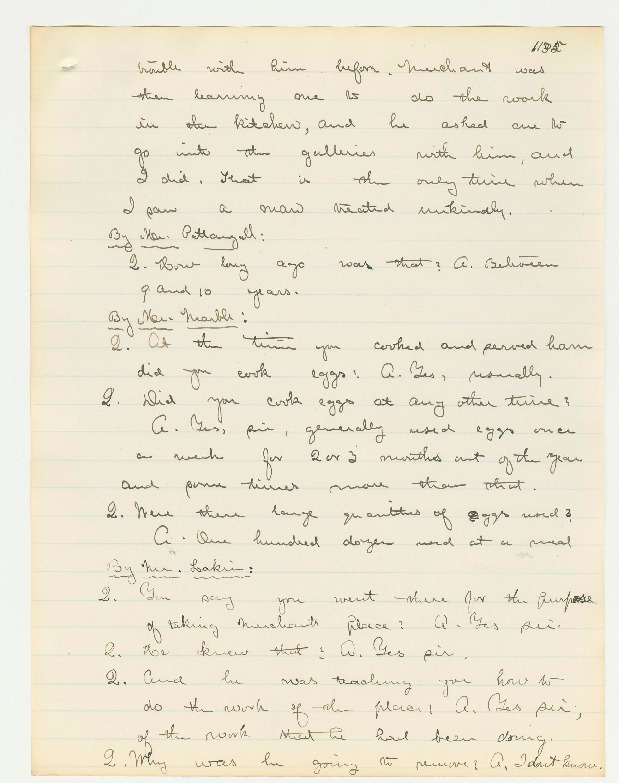 1135
trouble with him before. Merchant was
then learning me to do the work
in the kitchen, and he asked me to
go into the galleries with him, and
I did. That is the only time when
I saw a man treated unkindly.
By Mr. Pattangall:
Q. How long ago was that? A. Between
9 and 10 years.
By Mr. Marble:
Q. At the time you cooked and served ham
did you cook eggs? A. Yes, usually.
Q. Did you cook eggs at any other time?
A. Yes, sir, generally used eggs once
a week for 2 or 3 months out of the year
and some times more than that.
Q. Were there large quantities of eggs used?
A. One hundred dozen used at a meal
By Mr. Lakin:
Q. You say you went there for the purpose
of taking Merchants place? A. Yes sir.
Q. He knew that? A. Yes sir.
Q. And he was teaching you how to
do the work of the place? A. Yes sir,
of the work that he had been doing.
Q. Why was he going to remove? A. I dont know.